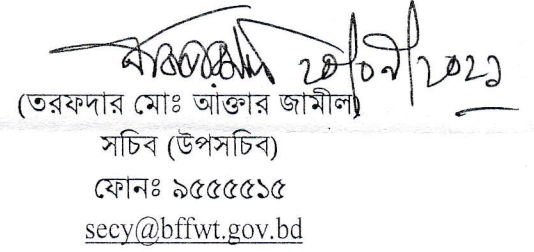 (তরফদার মোঃ আক্তার জামীল)
সচিব (উপসচিব)
ফোনঃ ৯৫৫৫৫১৫
secy@bffwt.gov.bd